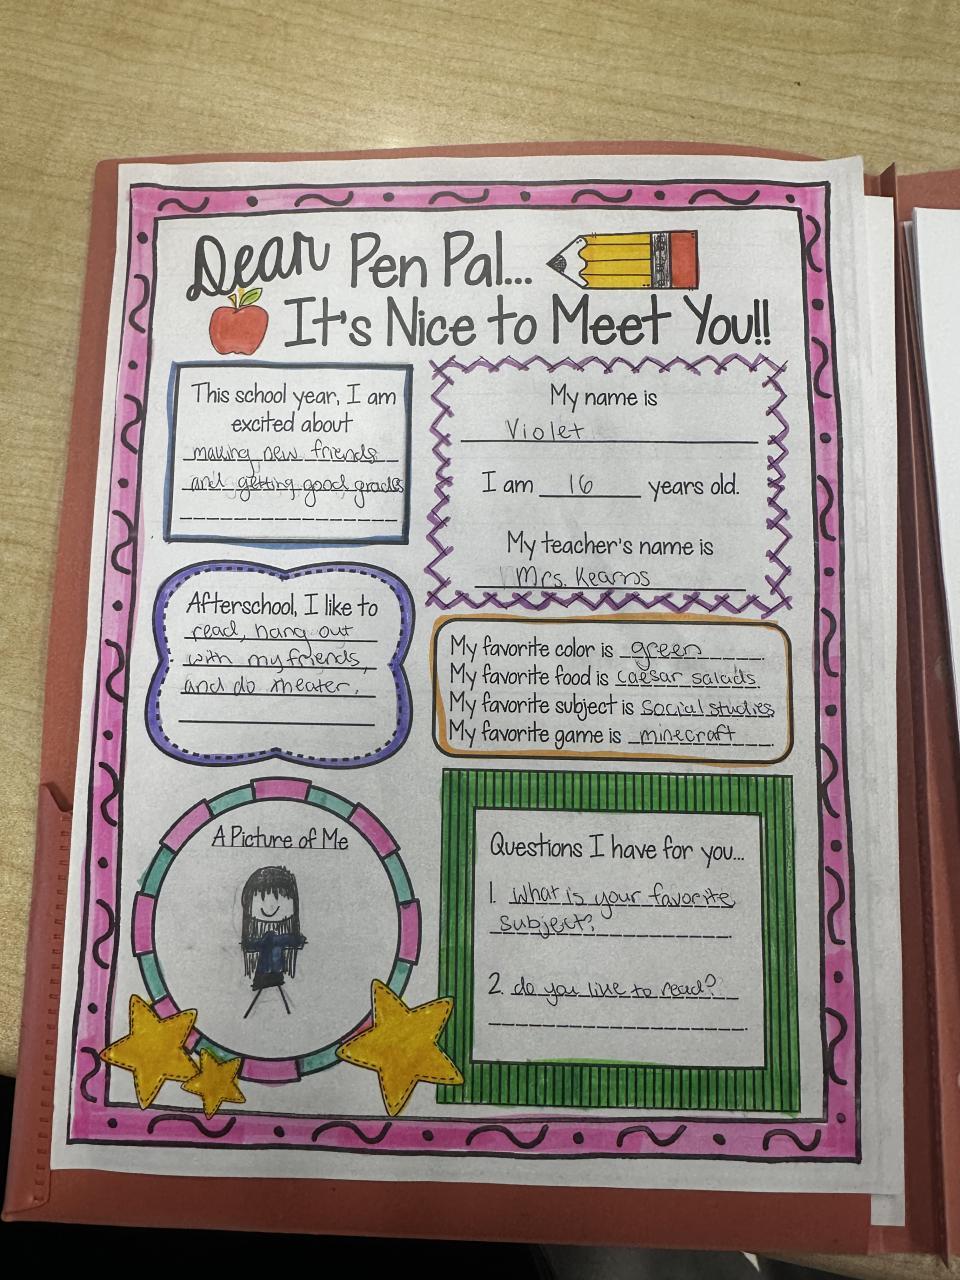 Dear Pen Pal...
It's Nice to Meet You!!
This school year, I am
excited about
making new friends
and getting good grades
My name is
Violet
I am 16 years old.
My teacher's name is
Mrs. Kearns
Afterschool, I like to
read, hang out
with my friends,
and do theater.
My favorite color is green
My favorite food is caesar salads
My favorite subject is social studies
My favorite game is minecraft
A Picture of Me
Questions I have for you...
1. What is your favorite
subject?
2. do you like to read?